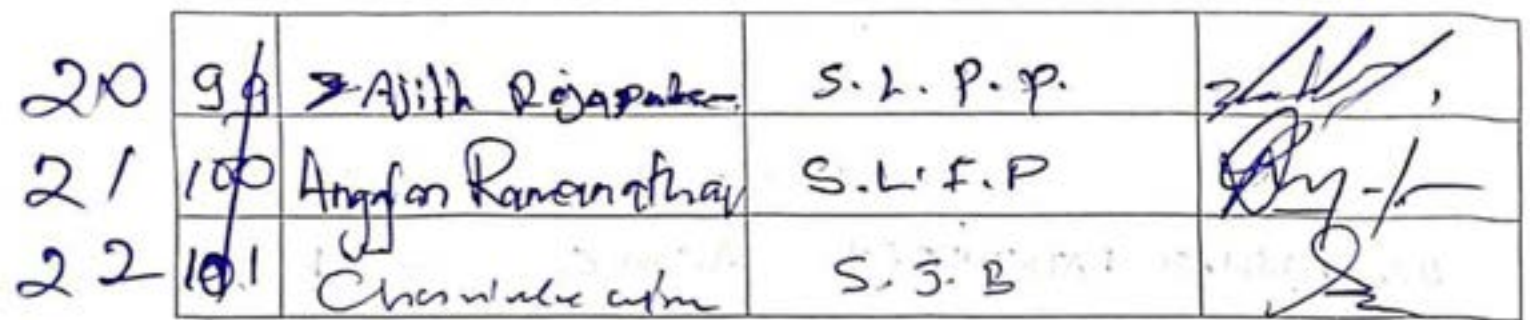 20 99 Ajith Rajapakse S.L.P.P.
21 100 Angajan Ramanathan S.L.F.P
22 101 S.J.B